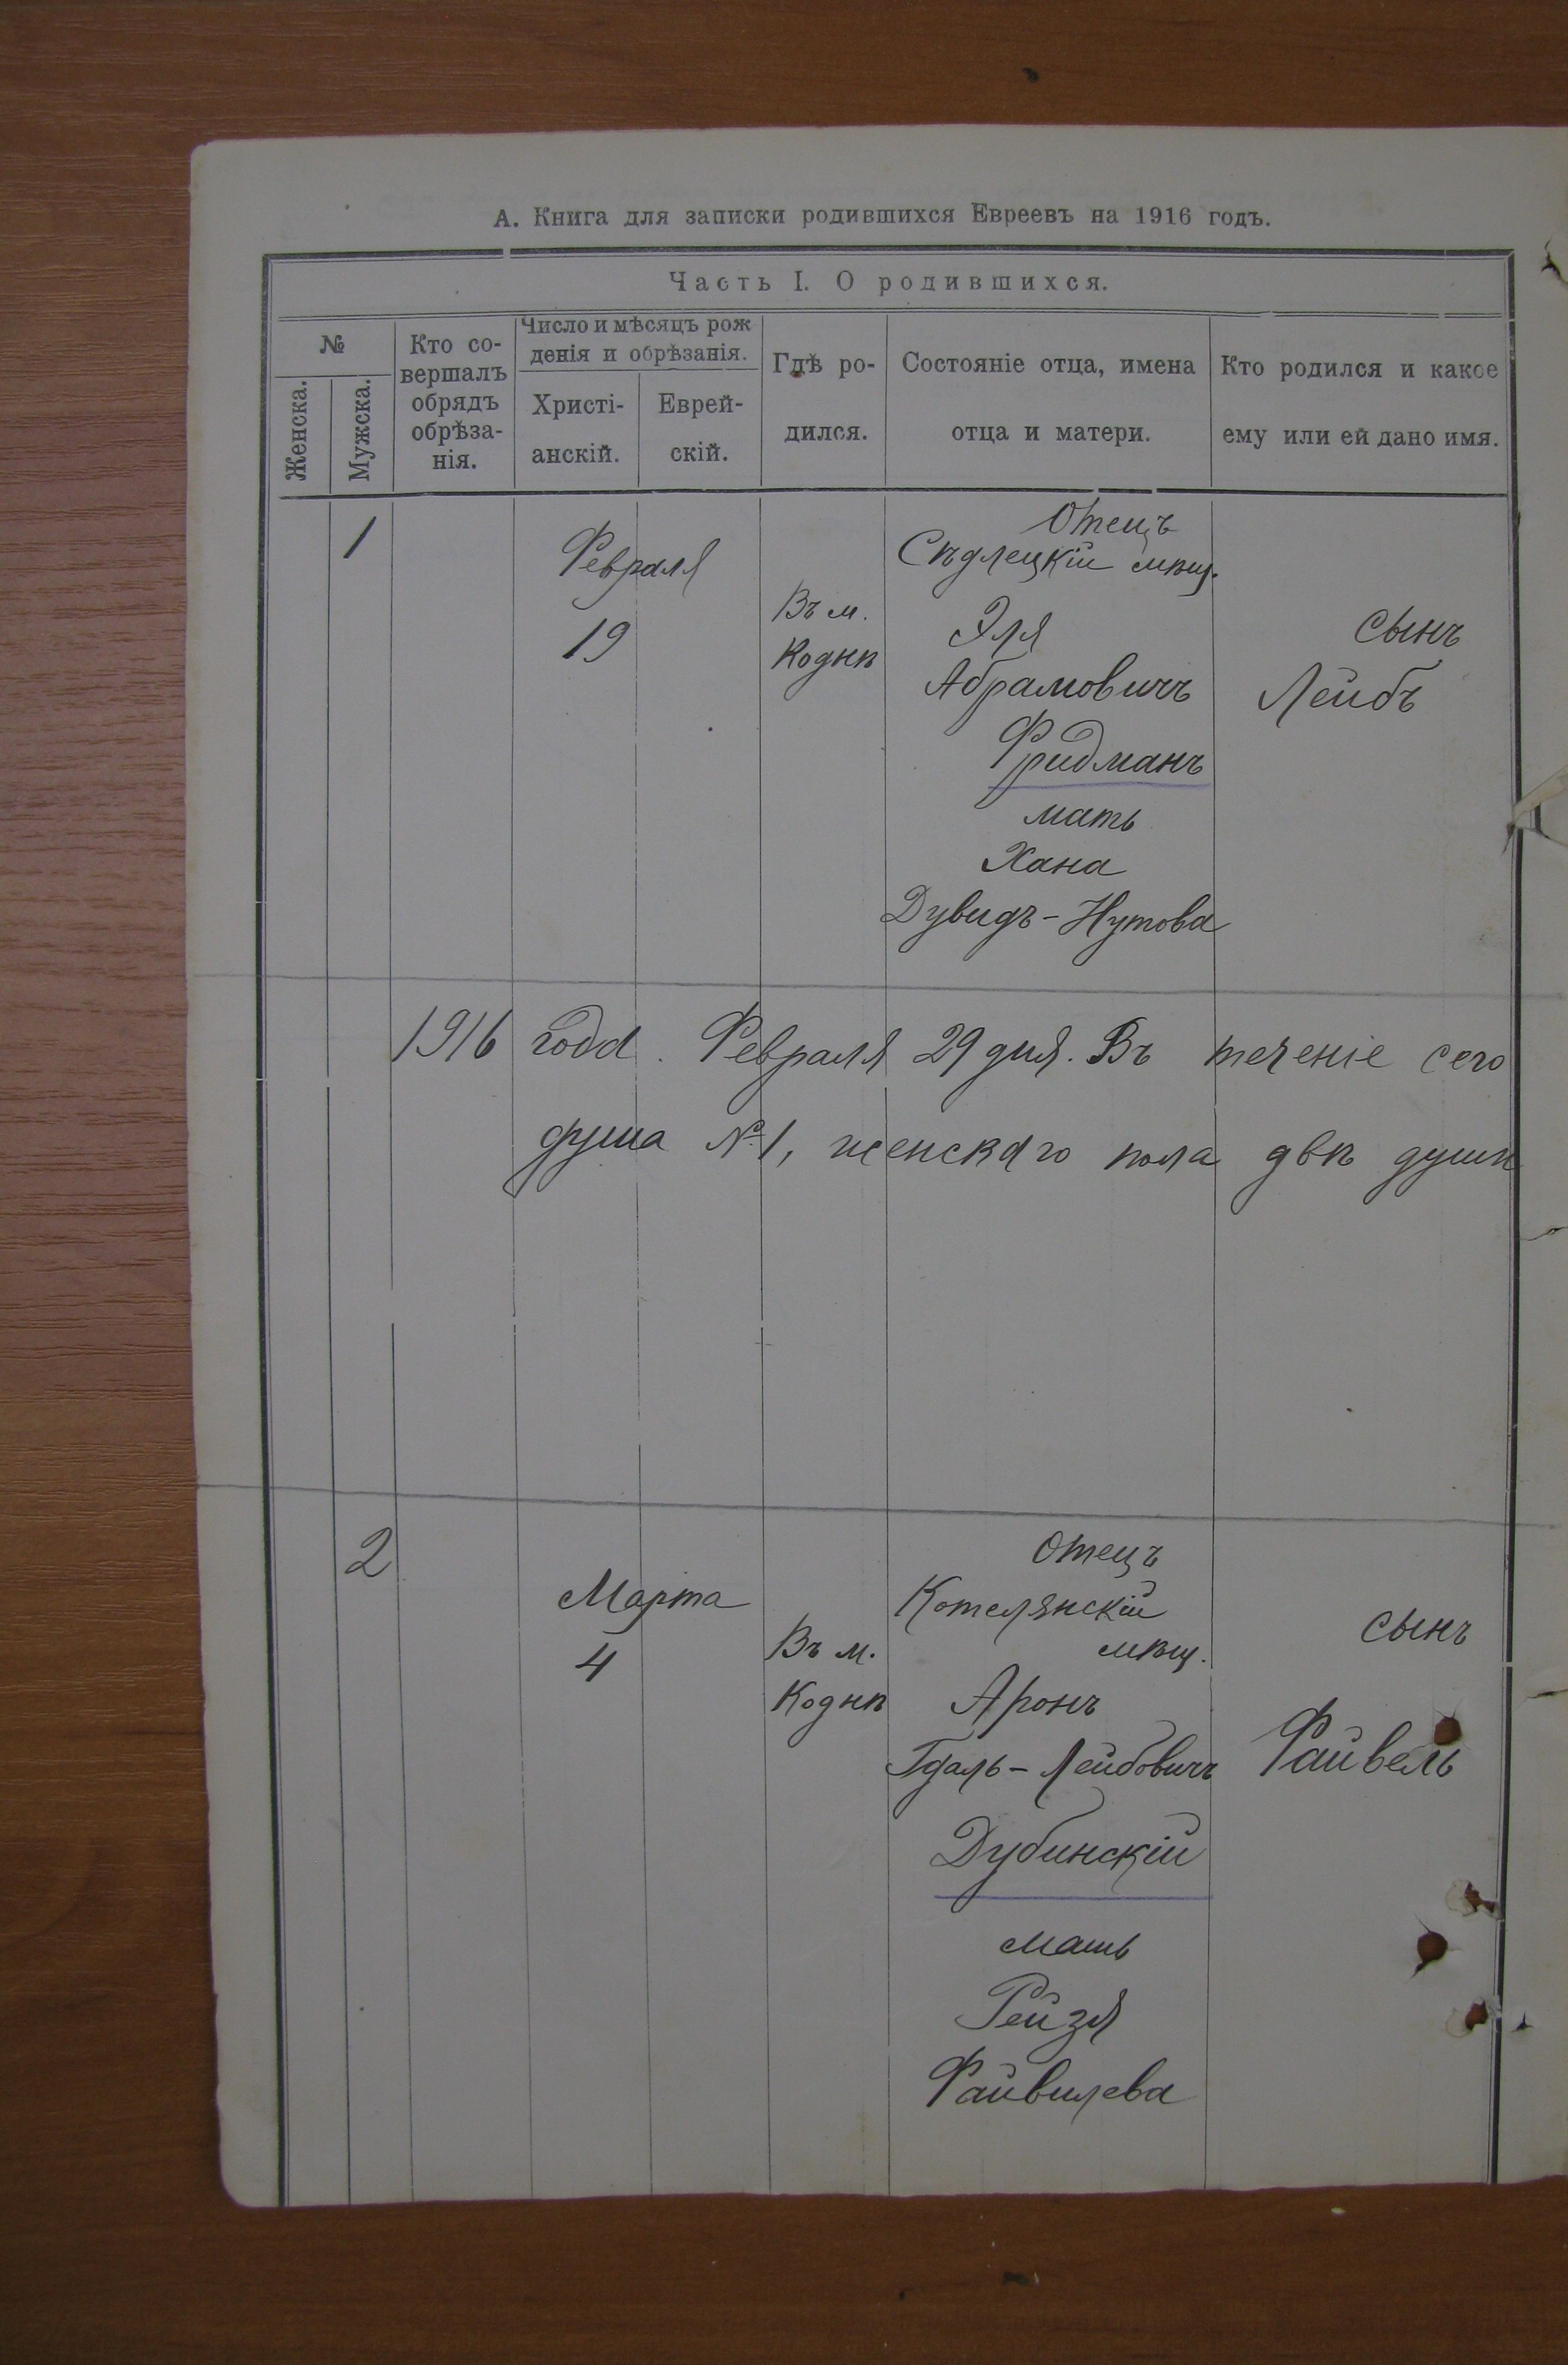 А. Книга для записки родившихся Евреевъ на 1916 годъ.
Часть I. О родившихся.
№
Женска.
Мужска.
Кто со-
вершалъ
обрядъ
обрѣза-
нія.
Число и мѣсяцъ рож
денія и обрѣзанія.
Христі-
анскій.
Еврей-
скій.
Гдѣ ро-
дился.
Состояніе отца, имена
отца и матери.
Кто родился и какое
ему или ей дано имя.
1
Февраля
19
Въ м.
Коднѣ
Отецъ
Сѣдлецкій мѣщ.
Эля
Абрамовичъ
Фридманъ
мать
Хана
Дувидъ-Нутова
сынъ
Лейбъ
1916 года. Февраля 29 дня. Въ теченіе сего
душа №1, женскаго пола двѣ души
2
Марта
4
Въ м.
Коднѣ
Отецъ
Котелянскій
мѣщ.
Аронъ
Гдаль-Лейбовичъ
Дубинскій
мать
Рейзя
Файвилева
сынъ
Файвель